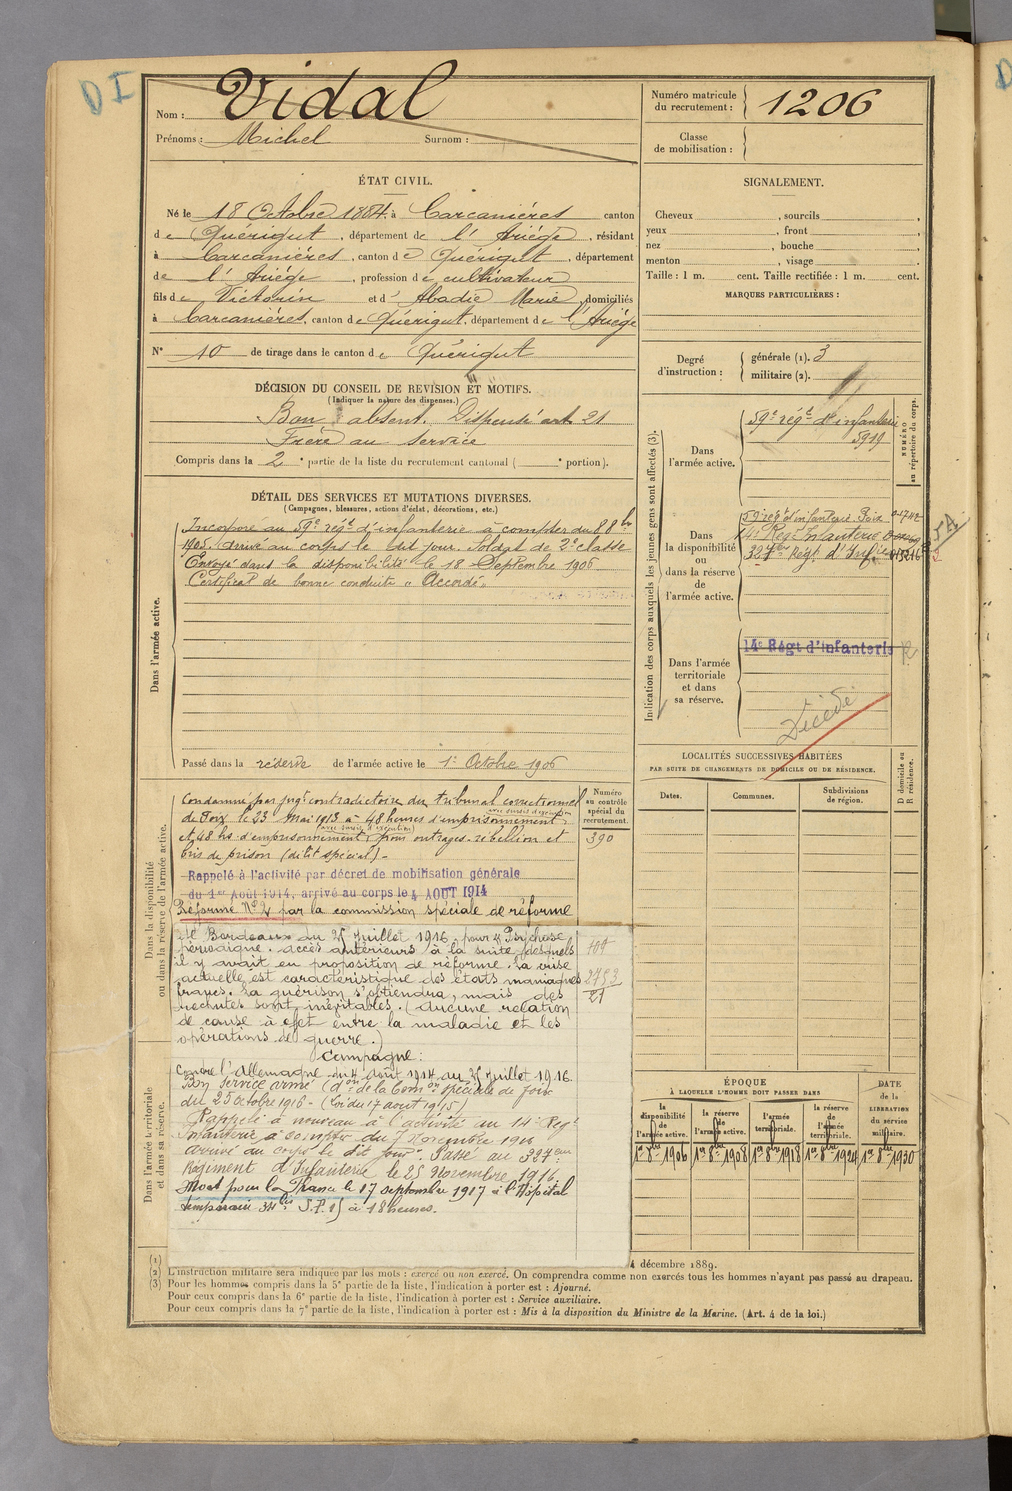 DI
Nom : Vidal
Prénoms : Michel Surnom :
Numéro matricule du recrutement : 1206
Classe de mobilisation :
ÉTAT CIVIL.
Né le 18 Octobre 1884 à Carcanières canton
de Quérigut, département de l'Ariège, résidant
à Carcanières, canton de Quérigut, département
de l'Ariège, profession de cultivateur
fils de Victorin et d'Abadie Marie, domiciliés
à Carcanières, canton de Quérigut, département de l'Ariège
N° 10 de tirage dans le canton de Quérigut
SIGNALEMENT.
Cheveux , sourcils ,
yeux , front ,
nez , bouche ,
menton , visage .
Taille : 1 m. cent. Taille rectifiée : 1 m. cent.
MARQUES PARTICULIÈRES :
Degré d'instruction : générale (1). 3
militaire (2).
DÉCISION DU CONSEIL DE REVISION ET MOTIFS.
(Indiquer la nature des dispenses.)
Bon absent. Dispensé art 21
Frère au service
Compris dans la 2e partie de la liste du recrutement cantonal ( e portion).
DÉTAIL DES SERVICES ET MUTATIONS DIVERSES.
(Campagnes, blessures, actions d'éclat, décorations, etc.)
Dans l'armée active.
Incorporé au 59e régt d'infanterie à compter du 8 8bre
1905. Arrivé au corps le dit jour. Soldat de 2e classe
Envoyé dans la disponibilité le 18 Septembre 1906
Certificat de bonne conduite "Accordé"
Passé dans la réserve de l'armée active le 1er Octobre 1906
Indication des corps auxquels les jeunes gens sont affectés (3).
NUMÉRO au répertoire du corps.
Dans l'armée active.
59e régt d'infanterie
5919
Dans la disponibilité ou dans la réserve de l'armée active.
59e régt d'infanterie Foix
14e Régt Infanterie
327e Régt d'Infie
Dans l'armée territoriale et dans sa réserve.
14e Régt d'Infanterie
R
Décédé
LOCALITÉS SUCCESSIVES HABITÉES
PAR SUITE DE CHANGEMENTS DE DOMICILE OU DE RÉSIDENCE.
D domicile ou R résidence.
Dates. Communes. Subdivisions de région.
Dans la disponibilité ou dans la réserve de l'armée active.
Numéro au contrôle spécial du recrutement.
390
Condamné par jugt contradictoire du tribunal correctionnel
de Foix le 23 Mai 1913 à 48 heures d'emprisonnement avec sursis d'exécution
et 48 hs d'emprisonnement (avec sursis d'exécution) pour outrages. rébellion et
bris de prison (délit spécial) -
Rappelé à l'activité par décret de mobilisation générale
du 1er Août 1914, arrivé au corps le 4 AOUT 1914
Réformé N° 2 par la commission spéciale de réforme
de Bordeaux du 25 Juillet 1916 pour "Psychose
périodique. accès antérieurs à la suite desquels
il y avait eu proposition de réforme. La crise
actuelle est caractéristique des états maniaques
francs. La guérison s'obtiendra, mais des
rechutes sont inévitables. (Aucune relation
de cause à effet entre la maladie et les
opérations de guerre.)
2753
21
Campagne :
Contre l'Allemagne du 4 août 1914 au 25 juillet 1916.
Dans l'armée territoriale et dans sa réserve.
Bon service armé (don de la Comon spéciale de Foix
du 25 octobre 1916 - (Loi du 17 août 1915)
Rappelé à nouveau à l'activité au 14e Régt
Infanterie à compter du 7 Novembre 1916
arrivé au corps le dit jour. Passé au 327eme
Régiment d'Infanterie le 25 Novembre 1916.
Mort pour la France le 17 septembre 1917 à l'Hôpital
temporaire 34bis S.P. 15 à 18 heures.
ÉPOQUE
À LAQUELLE L'HOMME DOIT PASSER DANS
DATE de la LIBÉRATION du service militaire.
la disponibilité de l'armée active. la réserve de l'armée active. l'armée territoriale. la réserve de l'armée territoriale.
1er 8bre 1906 1er 8bre 1908 1er 8bre 1918 1er 8bre 1924 1er 8bre 1930
(1) 4 décembre 1889.
(2) L'instruction militaire sera indiquée par les mots : exercé ou non exercé. On comprendra comme non exercés tous les hommes n'ayant pas passé au drapeau.
(3) Pour les hommes compris dans la 5e partie de la liste, l'indication à porter est : Ajourné.
Pour ceux compris dans la 6e partie de la liste, l'indication à porter est : Service auxiliaire.
Pour ceux compris dans la 7e partie de la liste, l'indication à porter est : Mis à la disposition du Ministre de la Marine. (Art. 4 de la loi.)